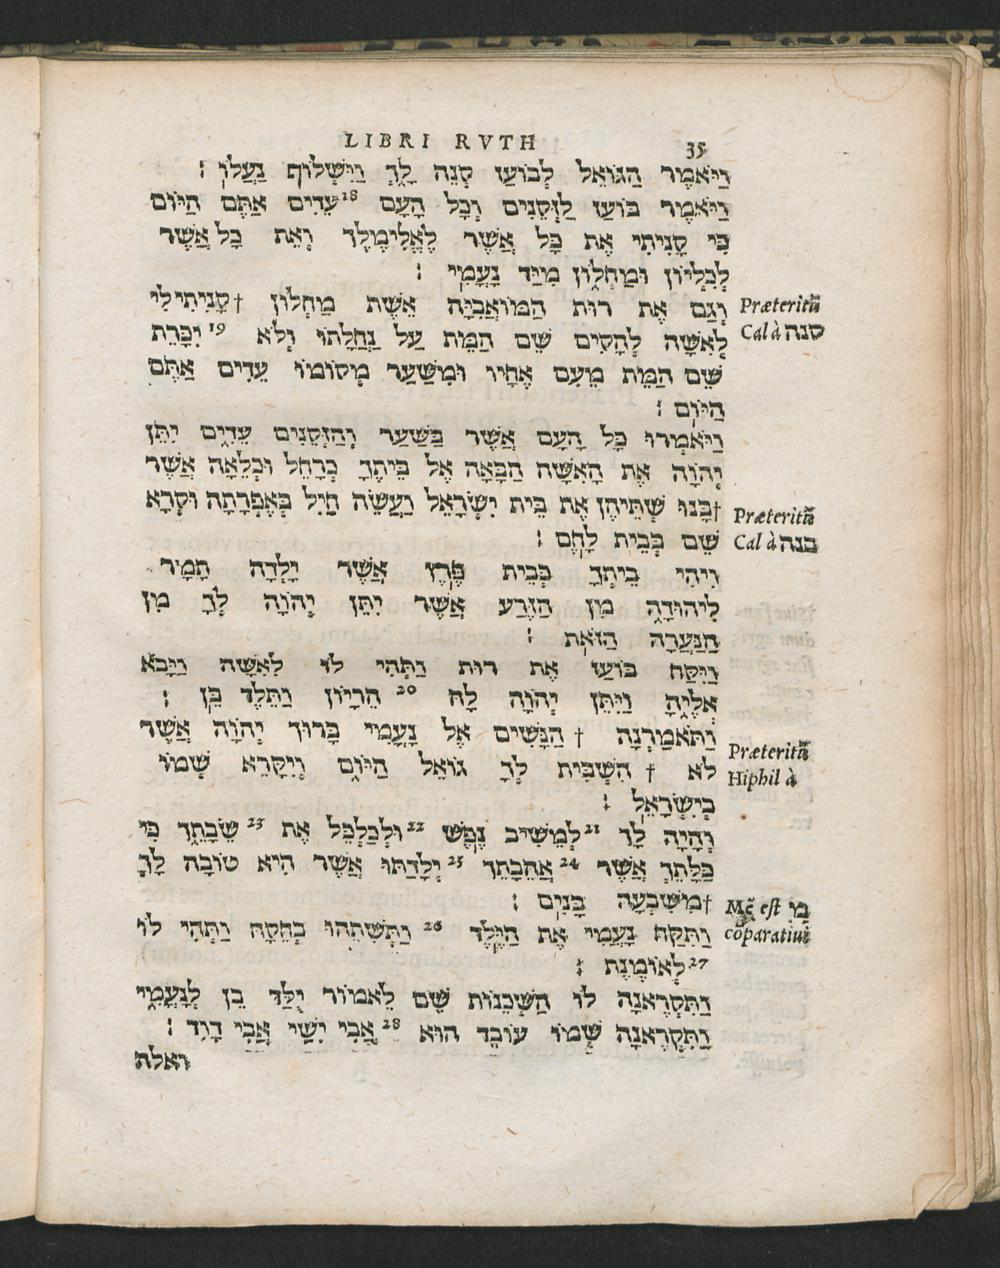 LIBRI RVTH 35
וַיֹּאמֶר הַגּוֹאֵל לְבוֹעַז קְנֵה לָךְ וַיִּשְׁלוֹף נַעֲלוֹ :
וַיֹּאמֶר בּוֹעַז לַזְּקֵנִים וְכָל הָעָם 18 עֵדִים אַתֶּם הַיּוֹם
כִּי קָנִיתִי אֶת כָּל אֲשֶׁר לֶאֱלִימֶלֶךְ וְאֵת כָּל אֲשֶׁר
לְכִלְיוֹן וּמַחְלוֹן מִיַּד נָעֳמִי :
וְגַם אֶת רוּת הַמּוֹאֲבִיָּה אֵשֶׁת מַחְלוֹן † קָנִיתִי לִי
לְאִשָּׁה לְהָקִים שֵׁם הַמֵּת עַל נַחֲלָתוֹ וְלֹא 19 יִכָּרֵת
שֵׁם הַמֵּת מֵעִם אֶחָיו וּמִשַּׁעַר מְקוֹמוֹ עֵדִים אַתֶּם
הַיּוֹם :
וַיֹּאמְרוּ כָּל הָעָם אֲשֶׁר בַּשַּׁעַר וְהַזְּקֵנִים עֵדִים יִתֵּן
יְהֹוָה אֶת הָאִשָּׁה הַבָּאָה אֶל בֵּיתֶךָ כְּרָחֵל וּכְלֵאָה אֲשֶׁר
† בָּנוּ שְׁתֵּיהֶן אֶת בֵּית יִשְׂרָאֵל וַעֲשֵׂה חַיִל בְּאֶפְרָתָה וּקְרָא
שֵׁם בְּבֵית לָחֶם :
וִיהִי בֵיתְךָ כְּבֵית פֶּרֶץ אֲשֶׁר יָלְדָה תָמָר
לִיהוּדָה מִן הַזֶּרַע אֲשֶׁר יִתֵּן יְהֹוָה לְךָ מִן
הַנַּעֲרָה הַזֹּאת :
וַיִּקַּח בּוֹעַז אֶת רוּת וַתְּהִי לוֹ לְאִשָּׁה וַיָּבֹא
אֵלֶיהָ וַיִּתֵּן יְהֹוָה לָהּ 20 הֵרָיוֹן וַתֵּלֶד בֵּן :
וַתֹּאמַרְנָה † הַנָּשִׁים אֶל נָעֳמִי בָּרוּךְ יְהֹוָה אֲשֶׁר
לֹא † הִשְׁבִּית לָךְ גּוֹאֵל הַיּוֹם וְיִקָּרֵא שְׁמוֹ
בְּיִשְׂרָאֵל :
וְהָיָה לָךְ 21 לְמֵשִׁיב נֶפֶשׁ 22 וּלְכַלְכֵּל אֶת 23 שֵׂבָתֵךְ כִּי
כַלָּתֵךְ אֲשֶׁר 24 אֲהֵבָתֵךְ 25 יְלָדַתּוּ אֲשֶׁר הִיא טוֹבָה לָךְ
† מִשִּׁבְעָה בָּנִים :
וַתִּקַּח נָעֳמִי אֶת הַיֶּלֶד 26 וַתְּשִׁתֵהוּ בְחֵקָהּ וַתְּהִי לוֹ
27 לְאוֹמֶנֶת :
וַתִּקְרֶאנָה לוֹ הַשְּׁכֵנוֹת שֵׁם לֵאמוֹר יֻלַּד בֵּן לְנָעֳמִי
וַתִּקְרֶאנָה שְׁמוֹ עוֹבֵד הוּא 28 אֲבִי יִשַׁי אֲבִי דָוִד :
ואלה
Præteritũ
Cal à קנה
Præteritũ
Cal à בנה
Præteritũ
Hiphil à
Mẽ est מִ
cõparatiui